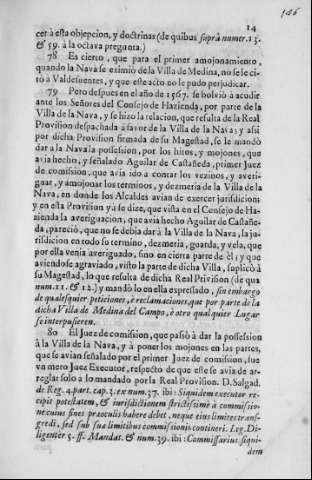 146
14
cer à esta objepcion, y doctrinas (de quibus suprà numer. 13.
& 59. à la octava pregunta.)
78 Es cierto, que para el primer amojonamiento,
quando la Nava se eximiò de la Villa de Medina, no se le ci-
tò à Valdefuentes, y que este acto no le pudo perjudicar.
79 Pero despues en el año de 1567. se bolviò à acudir
ante los Señores del Consejo de Hazienda, por parte de la
Villa de la Nava, y se hizo la relacion, que resulta de la Real
Provision despachada à favor de la Villa de la Nava; y assi
por dicha Provision firmada de su Magestad, se le mandò
dar à la Nava la possession, por los hitos, y mojones, que
avia hecho, y señalado Aguilar de Castañeda, primer Juez
de comission, que avia ido à contar los vezinos, y averi-
guar, y amojonar los terminos, y dezmeria de la Villa de la
Nava, en donde los Alcaldes avian de exercer jurisdicion;
y en esta Provision yà se dize, que vista en el Consejo de Ha-
zienda la averiguacion, que avia hecho Aguilar de Castañe-
da, pareciò, que no se debia dar à la Villa de la Nava, la ju-
risdicion en todo su termino, dezmeria, guarda, y vela, que
por ella venia averiguado, sino en cierta parte de èl; y que
aviendose agraviado, visto la parte de dicha Villa, suplicò à
su Magestad, lo que resulta de dicha Real Privision (de qua
num. 11. & 12.) y mandò lo en ella expressado, sin embargo
de qualesquier peticiones, ò reclamaciones, que por parte de la
dicha Villa de Medina del Campo, ò otro qualquier Lugar
se interpusieren.
80 El Juez de comission, que passò à dar la possession
à la Villa de la Nava, y à poner los mojones en las partes,
que se avian señalado por el primer Juez de comission, fue
un mero Juez Executor, respecto de que este se avia de ar-
reglar solo à lo mandado por la Real Provision. D. Salgad.
de Reg. 4. part. cap. 3. ex num. 37. ibi: Siquidem executor re-
cipit potestatem, & iurisdictionem strictissimè à commissio-
ne cuius fines præ oculis habere debet, neque eius limites transf-
gredi, sed sub sua limitibus commissionis contineri. Leg. Di-
ligenter 5. ff. Mandat. & num. 39. ibi: Commissarius siqui-
dem